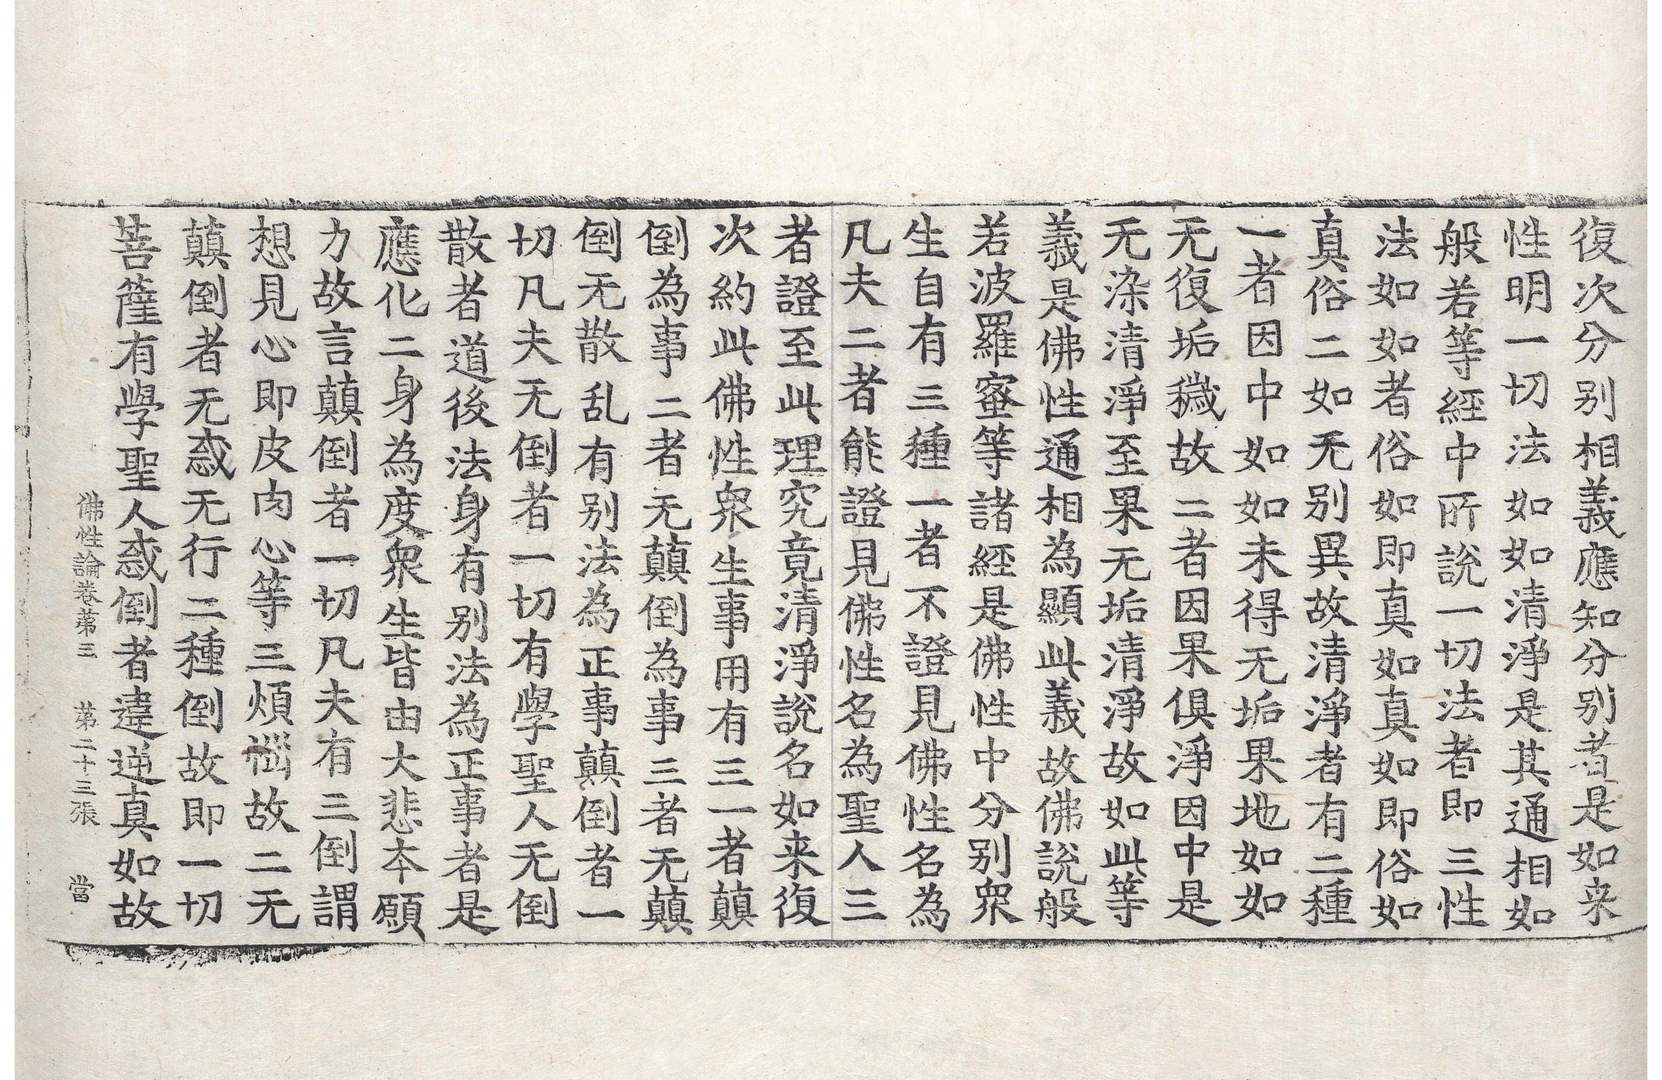 復次分別相義應知分別者是如来
性明一切法如如清淨是其通相如
般若等經中所說一切法者即三性
法如如者俗如即真如真如即俗如
真俗二如无別異故清淨者有二種
一者因中如如未得无垢果地如如
无復垢穢故二者因果俱淨因中是
无染清淨至果无垢清淨故如此等
義是佛性通相為顯此義故佛說般
若波羅蜜等諸經是佛性中分別衆
生自有三種一者不證見佛性名為
凡夫二者能證見佛性名為聖人三
者證至此理究竟清淨說名如来復
次約此佛性衆生事用有三一者顛
倒為事二者无顛倒為事三者无顛
倒无散乱有別法為正事顛倒者一
切凡夫无倒者一切有學聖人无倒
散者道後法身有別法為正事者是
應化二身為度衆生皆由大悲本願
力故言顛倒者一切凡夫有三倒謂
想見心即皮肉心等三煩惱故二无
顛倒者无惑无行二種倒故即一切
菩薩有學聖人惑倒者違逆真如故
佛性論卷第三 第二十三張 當